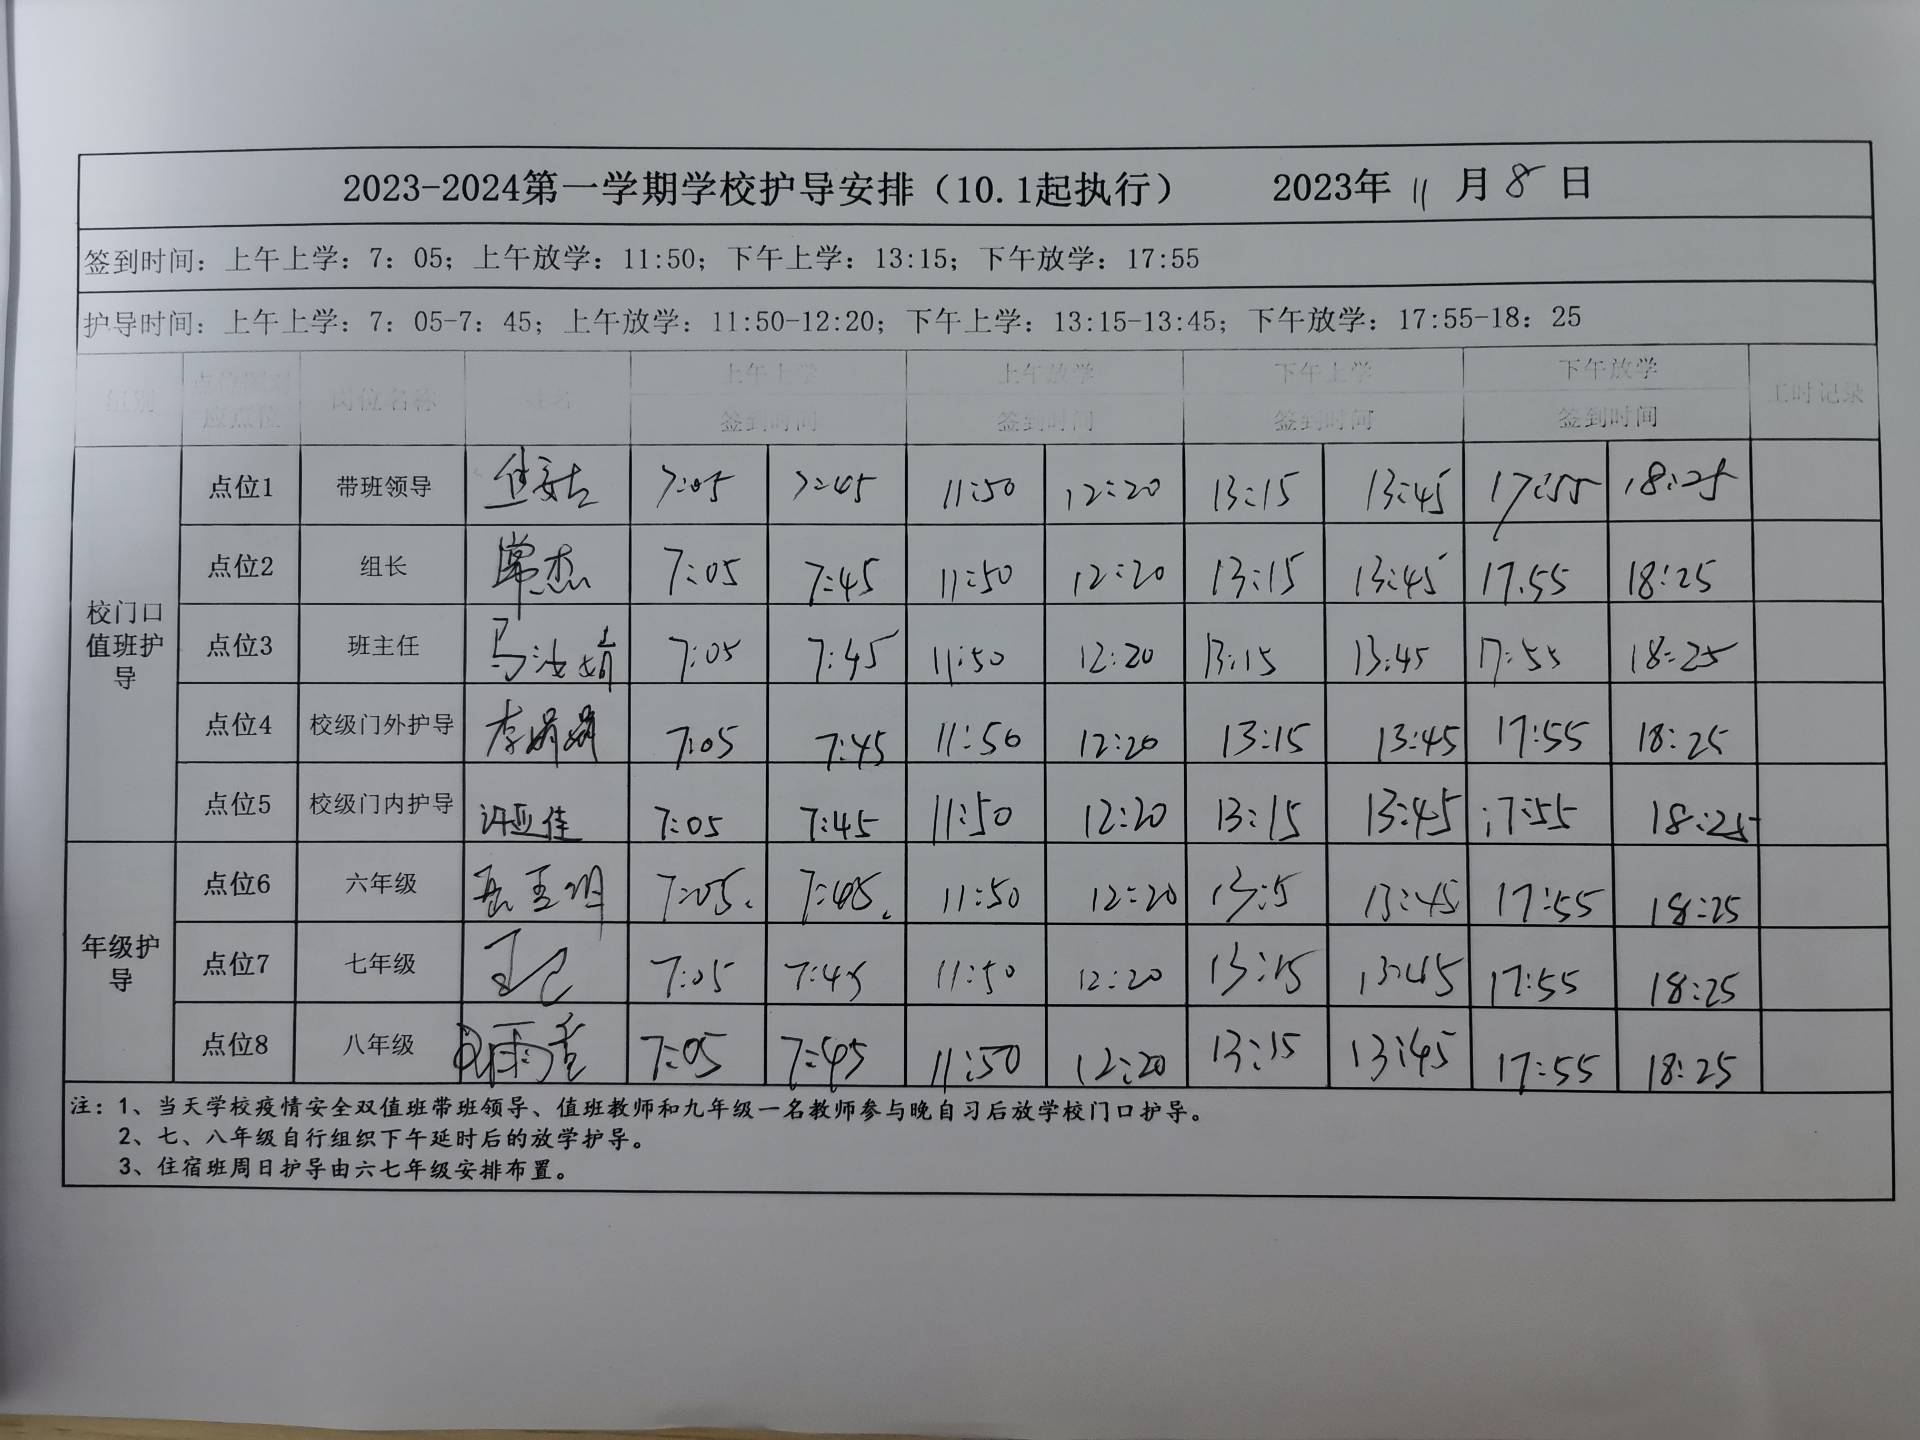 2023-2024第一学期学校护导安排（10.1起执行） 2023年 11 月 8 日
签到时间：上午上学：7：05；上午放学：11:50；下午上学：13:15；下午放学：17:55
护导时间：上午上学：7：05-7：45；上午放学：11:50-12:20；下午上学：13:15-13:45；下午放学：17:55-18：25
组别 岗位名称 姓名 上午上学 上午放学 下午上学 下午放学 工时记录
应点位 签到时间 签到时间 签到时间 签到时间
校门口值班护导
点位1 带班领导 7:05 7:45 11:50 12:20 13:15 13:45 17:55 18:25
点位2 组长 常杰 7:05 7:45 11:50 12:20 13:15 13:45 17.55 18:25
点位3 班主任 马 7:05 7:45 11:50 12:20 13:15 13:45 17:55 18:25
点位4 校级门外护导 李娟娟 7:05 7:45 11:50 12:20 13:15 13:45 17:55 18:25
点位5 校级门内护导 许亚佳 7:05 7:45 11:50 12:20 13:15 13:45 17:55 18:25
年级护导
点位6 六年级 7:05. 7:45. 11:50 12:20 13:5 13:45 17:55 18:25
点位7 七年级 7:05 7:45 11:50 12:20 13:15 13:45 17:55 18:25
点位8 八年级 7:05 7:45 11:50 12:20 13:15 13:45 17:55 18:25
注：1、当天学校疫情安全双值班带班领导、值班教师和九年级一名教师参与晚自习后放学校门口护导。
2、七、八年级自行组织下午延时后的放学护导。
3、住宿班周日护导由六七年级安排布置。